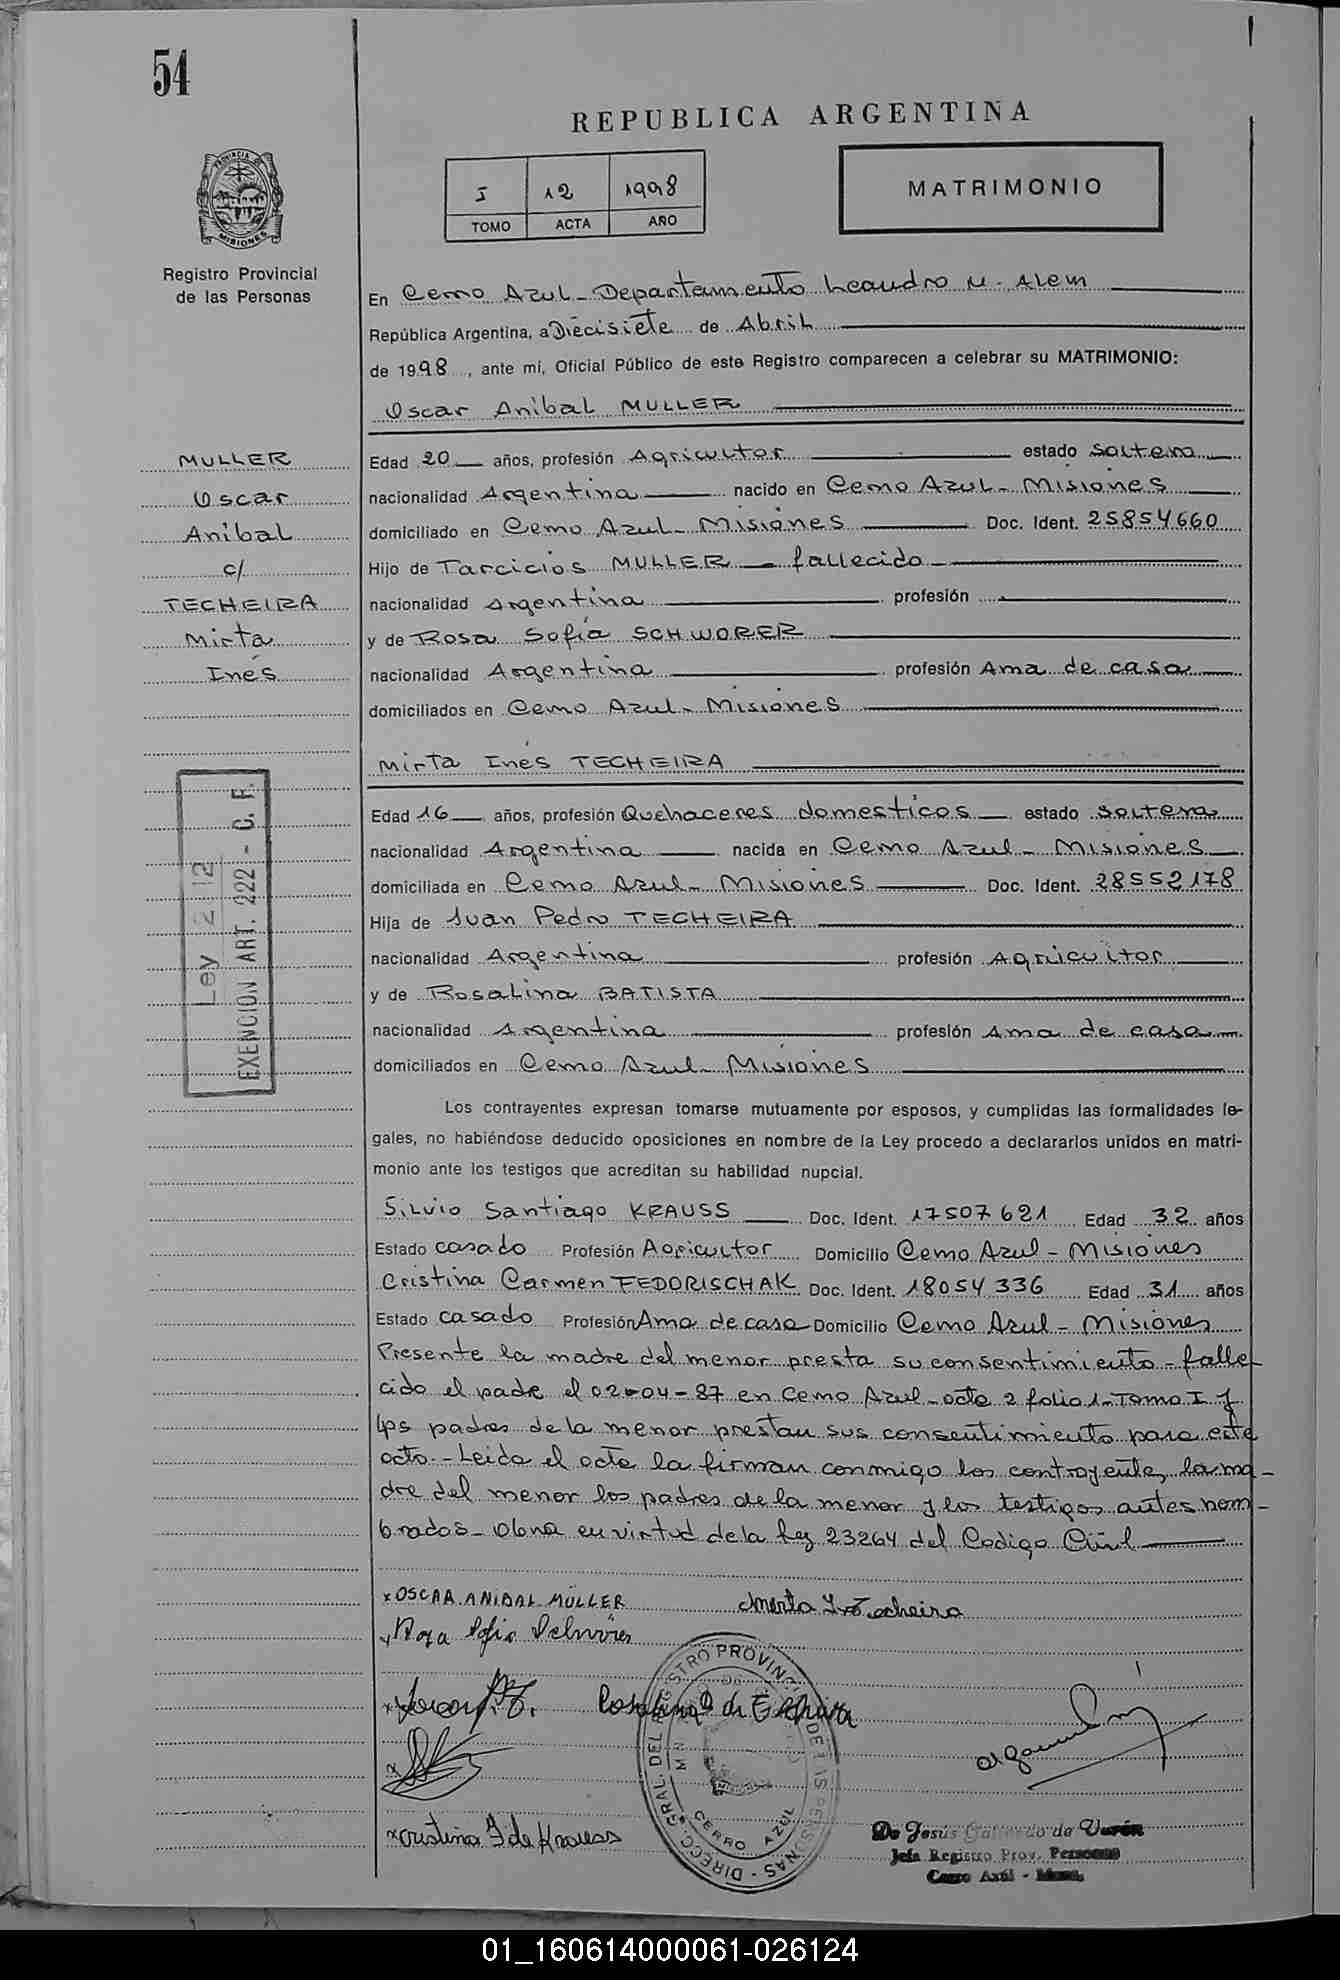 54
REPUBLICA ARGENTINA
I 12 1998
TOMO ACTA AÑO
MATRIMONIO
PROVINCIA DE
MISIONES
Registro Provincial
de las Personas
En Cerro Azul - Departamento Leandro N. Alem
República Argentina, a Diecisiete de Abril
de 1998, ante mí, Oficial Público de este Registro comparecen a celebrar su MATRIMONIO:
Oscar Anibal MULLER
MULLER
Oscar
Anibal
c/
TECHEIRA
Mirta
Inés
Edad 20 años, profesión Agricultor estado soltero
nacionalidad Argentina nacido en Cerro Azul - Misiones
domiciliado en Cerro Azul - Misiones Doc. Ident. 25854660
Hijo de Tarcicios MULLER - fallecido -
nacionalidad Argentina profesión -
y de Rosa Sofía SCHWORER
nacionalidad Argentina profesión Ama de casa
domiciliados en Cerro Azul - Misiones
Mirta Inés TECHEIRA
Ley 2 12
EXENCION ART. 222 - C. F.
Edad 16 años, profesión Quehaceres domesticos estado soltera
nacionalidad Argentina nacida en Cerro Azul - Misiones
domiciliada en Cerro Azul - Misiones Doc. Ident. 28552178
Hija de Juan Pedro TECHEIRA
nacionalidad Argentina profesión Agricultor
y de Rosalina BATISTA
nacionalidad Argentina profesión Ama de casa
domiciliados en Cerro Azul - Misiones
Los contrayentes expresan tomarse mutuamente por esposos, y cumplidas las formalidades le-
gales, no habiéndose deducido oposiciones en nombre de la Ley procedo a declararlos unidos en matri-
monio ante los testigos que acreditan su habilidad nupcial.
Silvio Santiago KRAUSS Doc. Ident. 17507621 Edad 32 años
Estado casado Profesión Agricultor Domicilio Cerro Azul - Misiones
Cristina Carmen FEDORISCHAK Doc. Ident. 18054336 Edad 31 años
Estado casado Profesión Ama de casa Domicilio Cerro Azul - Misiones
Presente la madre del menor presta su consentimiento - falle
cido el padre el 02-04-87 en Cerro Azul - acta 2 folio 1 - Tomo I y
los padres de la menor prestan sus consentimiento para este
acto. - Leida el acta la firman conmigo los contrayentes, la ma-
dre del menor los padres de la menor y los testigos antes nom-
brados - Obra en virtud de la Ley 23264 del Codigo Civil
x OSCAR ANIBAL MÜLLER
x Rosa Sofia
x Cristina F de Krauss
DIRECC. GRAL. DEL REGISTRO PROVINCIAL DE LAS PERSONAS -
CERRO AZUL
De Jesús Galeardo de Verón
Jefa Registro Prov. Personas
Cerro Azul - Mnes.
01_160614000061-026124